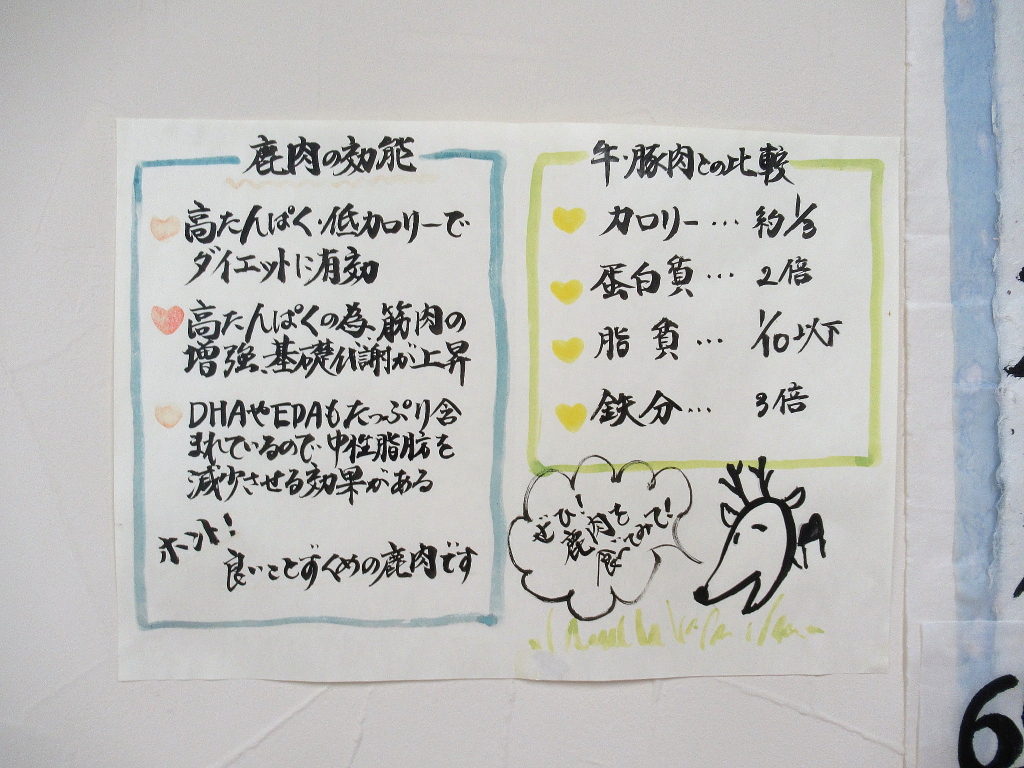 鹿肉の効能
高たんぱく・低カロリーで
ダイエットに有効
高たんぱくの為、筋肉の
増強、基礎代謝が上昇
DHAやEPAもたっぷり含
まれているので中性脂肪を
減少させる効果がある
ホント!
良いことずくめの鹿肉です
牛・豚肉との比較
カロリー… 約1/3
蛋白質… 2倍
脂質… 1/10以下
鉄分… 3倍
ぜひ!
鹿肉を
食べてみて!
6